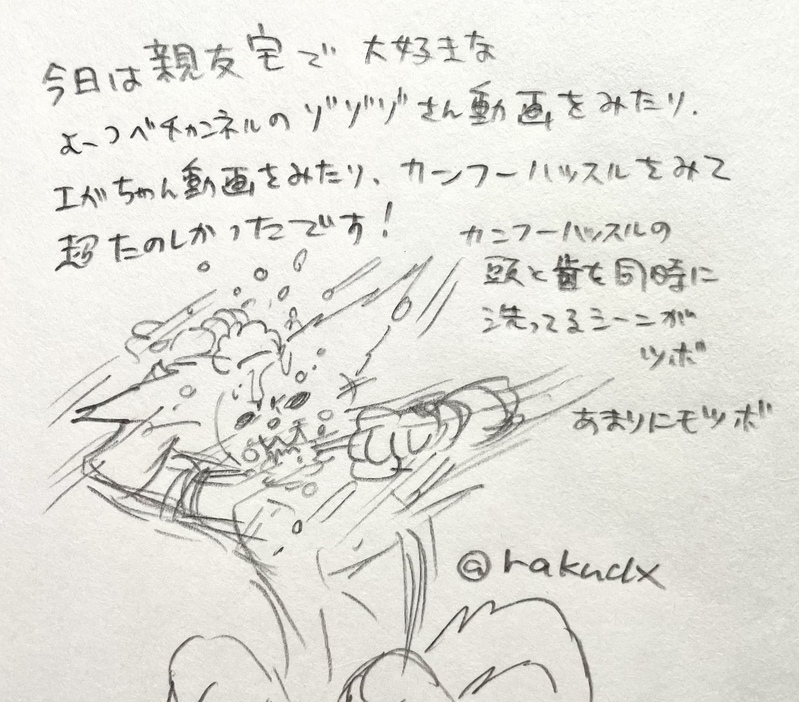 今日は親友宅で大好きな
よーつべチャンネルのゾゾゾさん動画をみたり、
エガちゃん動画をみたり、カンフーハッスルをみて
超たのしかったです!
カンフーハッスルの
頭と歯を同時に
洗ってるシーンが
ツボ
あまりにもツボ
@rakudx